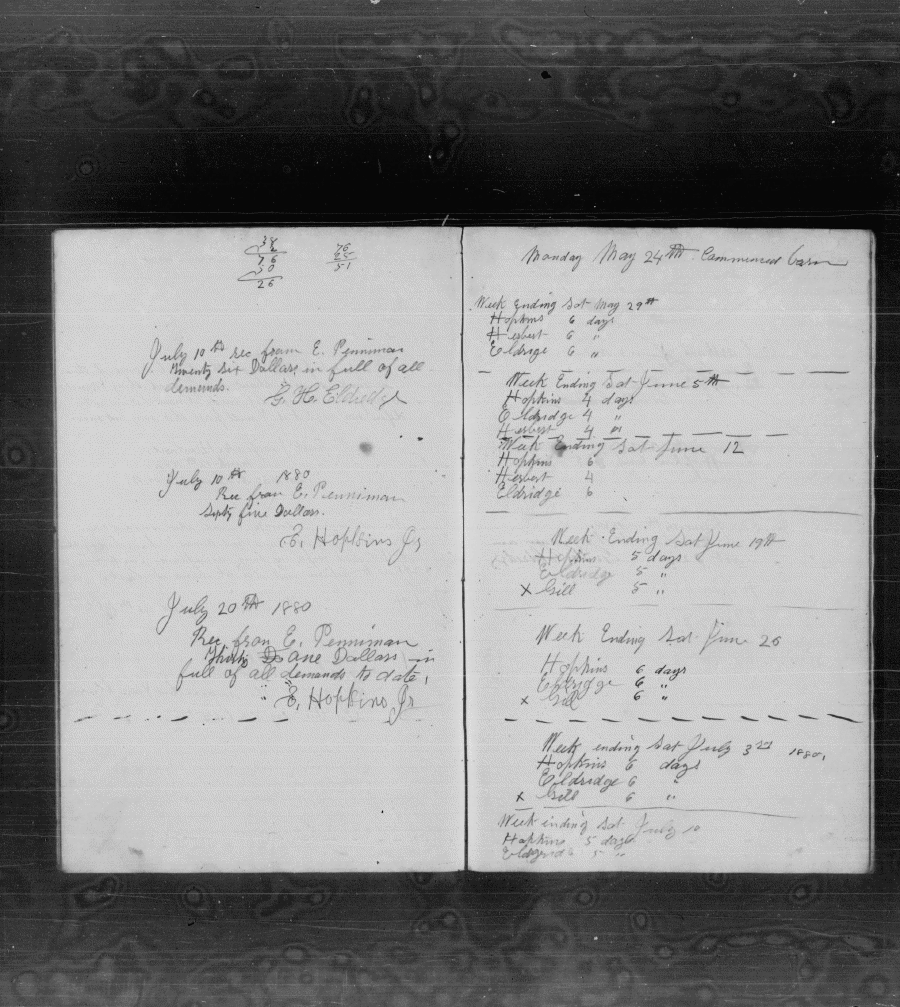 38
2
76
50
26
76
25
51
July 10th rec from E. Penniman
twenty six Dollars in full of all
demands.
G. H. Eldredge
July 10th 1880
Rec from E. Penniman
Sixty five Dollars.
E. Hopkins Jr
July 20th 1880
Rec from E. Penniman
Thirty one Dollars in
full of all demands to date,
" " E. Hopkins Jr
Monday May 24th Commenced
Week Ending Sat May 29th
Hopkins 6 days
Herbert 6 "
Eldrige 6 "
Week Ending Sat June 5th
Hopkins 4 days
Eldridge 4 "
Herbert 4 "
Week Ending Sat June 12
Hopkins 6
Herbert 4
Eldridge 6
Week Ending Sat June 19th
Hopkins 5 days
Eldridge 5 "
x Gill 5 "
Week Ending Sat June 26
Hopkins 6 days
Eldridge 6 "
x Gill 6 "
Week ending Sat July 3rd 1880,
Hopkins 6 days
Eldridge 6 "
x Gill 6 "
Week ending Sat July 10
Hopkins 5 days
Eldgride 5 "